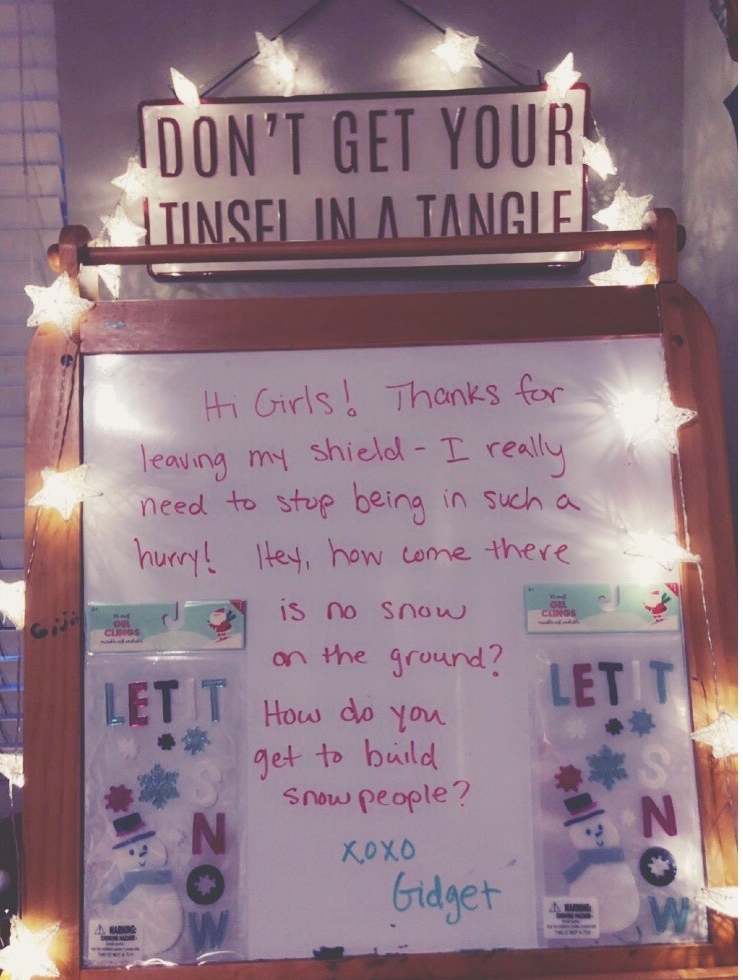 DON'T GET YOUR
TINSEL IN A TANGLE
Hi Girls! Thanks for
leaving my shield - I really
need to stop being in such a
hurry! Hey, how come there
is no snow
on the ground?
How do you
get to build
snowpeople?
xoxo
Gidget
GEL
CLINGS
LET IT
S
N
O
W
WARNING:
CHOKING HAZARD
GEL
CLINGS
LET IT
S
N
O
W
WARNING:
CHOKING HAZARD